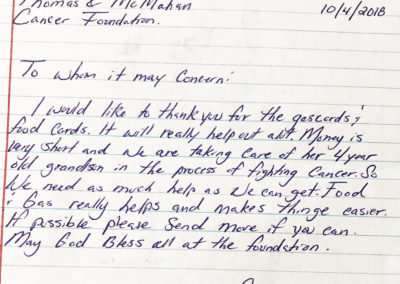 Thomas & McMahan 10/4/2018
Cancer Foundation.
To whom it may concern:
I would like to thank you for the gascards, &
food Cards. It will really help out alit. Money is
very short and we are taking care of her 4 year
old grandson in the process of fighting Cancer. So
We need as much help as we can get. Food
& Gas really helps and makes thinge easier.
If possible please Send more if you can.
May God Bless all at the foundation.